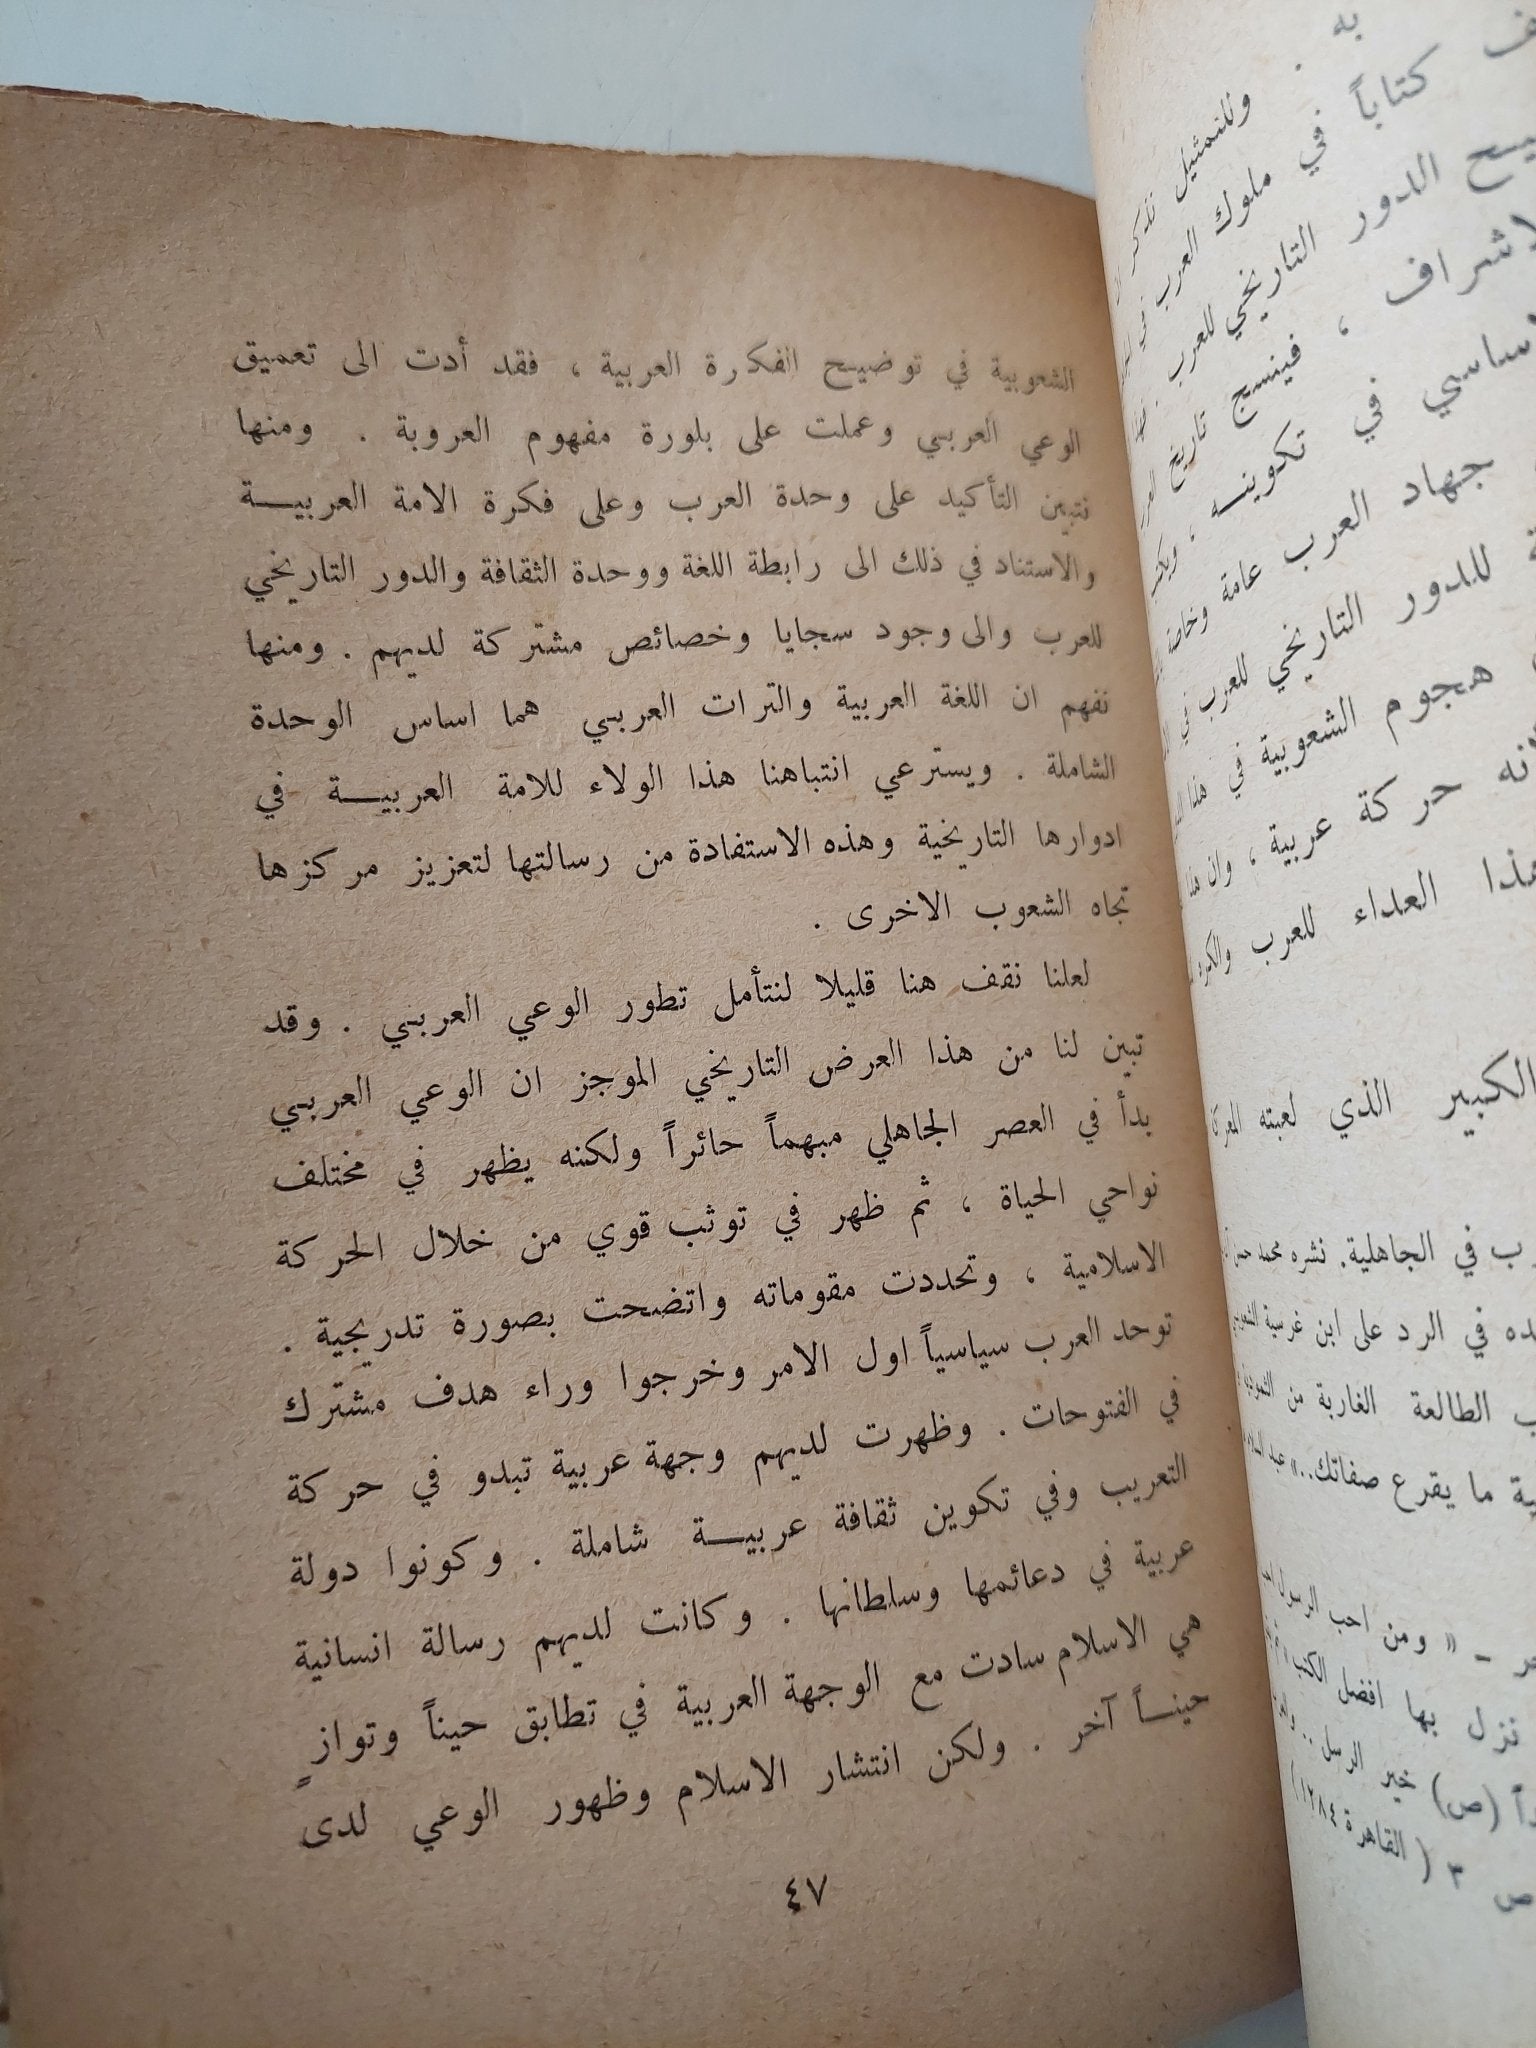 الشعوبية في توضيح الفكرة العربية ، فقد أدت الى تعميق
الوعي العربي وعملت على بلورة مفهوم العروبة . ومنها
نتبين التأكيد على وحدة العرب وعلى فكرة الامة العربيـــة
والاستناد في ذلك الى رابطة اللغة ووحدة الثقافة والدور التاريخي
للعرب والى وجود سجايا وخصائص مشتركة لديهم . ومنها
نفهم ان اللغة العربية والتراث العربي هما اساس الوحدة
الشاملة . ويسترعي انتباهنا هذا الولاء للامة العربيـــة في
ادوارها التاريخية وهذه الاستفادة من رسالتها لتعزيز مركزها
تجاه الشعوب الاخرى .
لعلنا نقف هنا قليلا لنتأمل تطور الوعي العربي . وقد
تبين لنا من هذا العرض التاريخي الموجز ان الوعي العربي
بدأ في العصر الجاهلي مبهماً حائراً ولكنه يظهر في مختلف
نواحي الحياة ، ثم ظهر في توثب قوي من خلال الحركة
الاسلامية ، وتحددت مقوماته واتضحت بصورة تدريجية .
توحد العرب سياسياً اول الامر وخرجوا وراء هدف مشترك
في الفتوحات . وظهرت لديهم وجهة عربية تبدو في حركة
التعريب وفي تكوين ثقافة عربيـــة شاملة . وكونوا دولة
عربية في دعائمها وسلطانها . وكانت لديهم رسالة انسانية
هي الاسلام سادت مع الوجهة العربية في تطابق حيناً وتوازٍ
حينـــاً آخر . ولكن انتشار الاسلام وظهور الوعي لدى
٤٧
به .
وللتمثيل نذكر
كتاباً في ملوك العرب في
الدور التاريخي للعرب
، فينسج تاريخ
في تكوينـــه ،
جهاد العرب عامة وخاصة
للدور التاريخي للعرب في
هجوم الشعوبية في هذا
حركة عربية ، وان هذا
العداء للعرب
الكبير الذي لعبته
في الجاهلية. نشره محمد حسن
في الرد على ابن غرسية
الطالعة الغاربة من
ما يقرع صفاتك..» عبد
– « ومن احب الرسول
نزل بها افضل الكتب
(ص) خير الرسل ..
ص ٣ ( القاهرة ١٢٨٤)